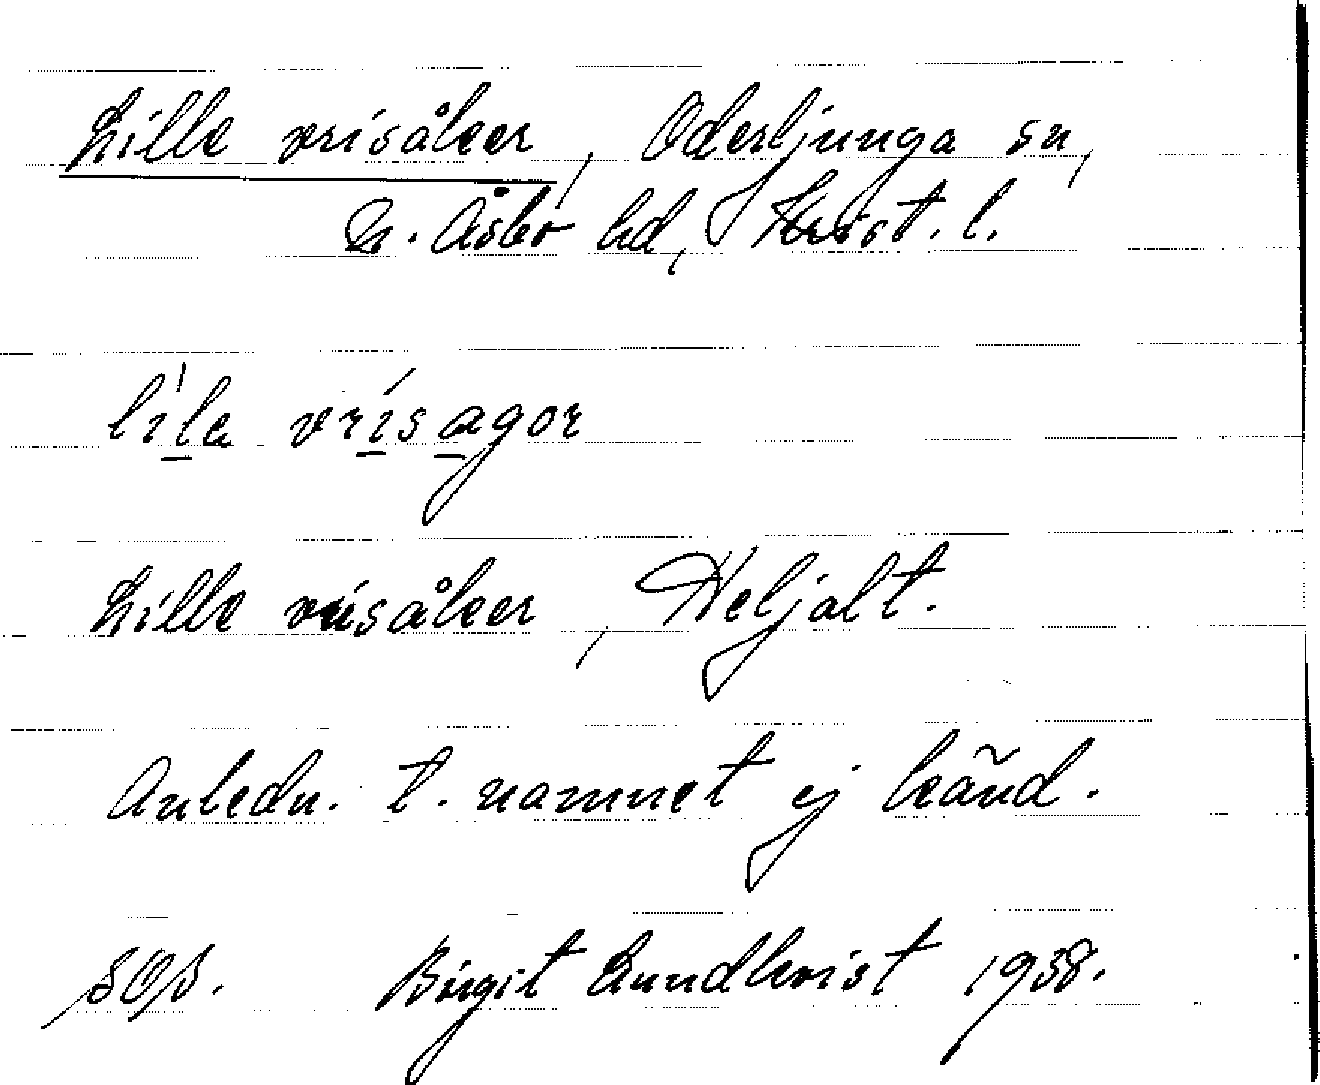 Lille vrisåker, Oderljunga sn,
N. Åsbo hd, Krist. l.
lila vrisagor
Lille vrisåker, Heljalt.
Anledn. t. namnet ej känd.
SOS. Birgit Lundkvist 1938.